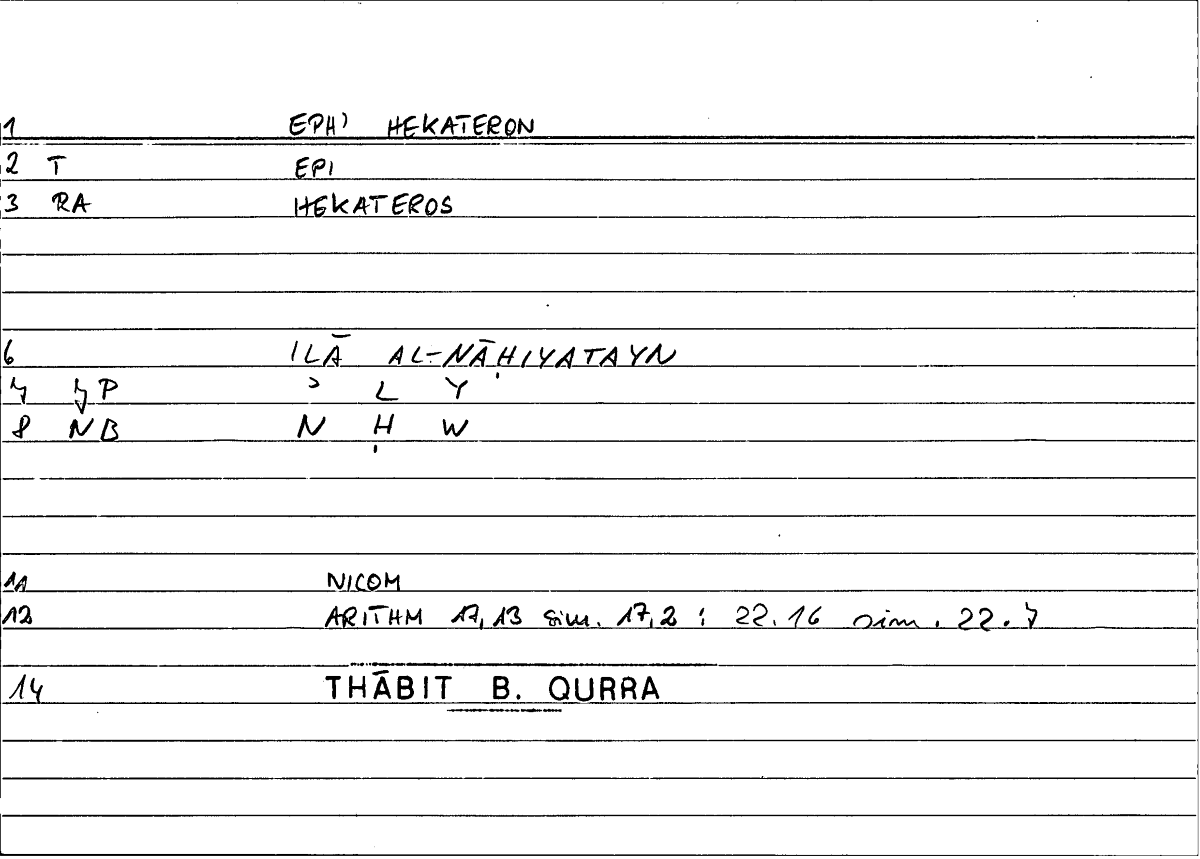 1 EPH' HEKATERON
2 T EPI
3 RA HEKATEROS
6 ILĀ AL-NĀḤIYATAYN
7 JP ʾ L Y
8 NB N Ḥ W
11 NICOM
12 ARITHM 17,13 sim. 17,2 : 22.16 sim. 22.7
14 THĀBIT B. QURRA